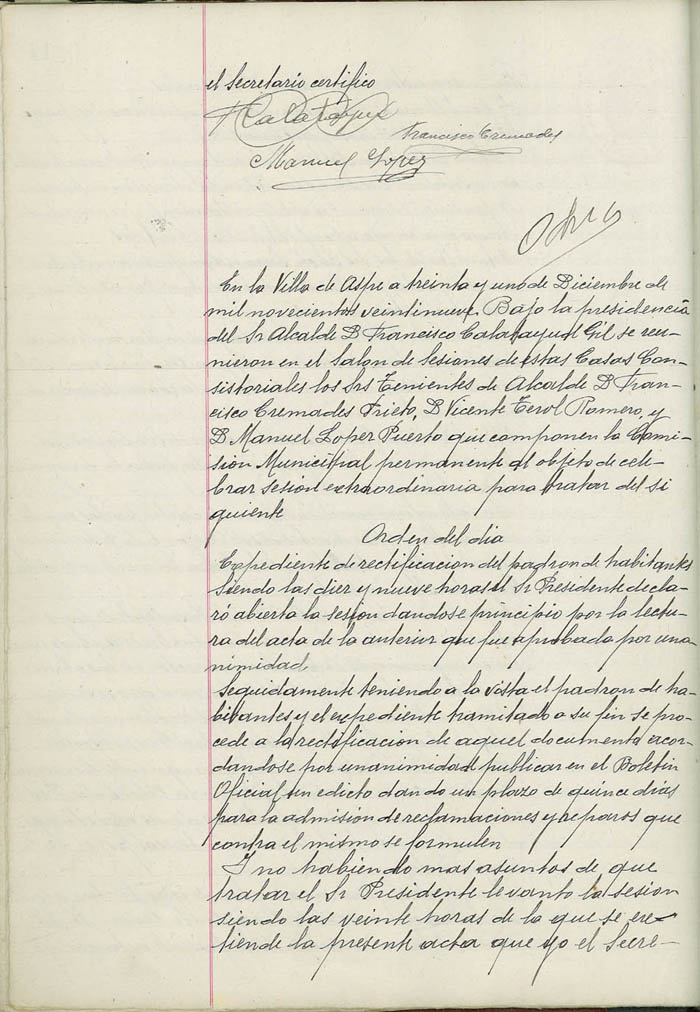 el Secretario certifico
F Calatayud
Francisco Cremades
Manuel Lopez
Otra
En la Villa de Aspe a treinta y uno de Diciembre de
mil novecientos veintinueve. Bajo la presidencia
del Sr Alcalde D Francisco Calatayud Gil se reu-
nieron en el Salon de Sesiones de estas Casas Con-
sistoriales los Srs Tenientes de Alcalde D Fran-
cisco Cremades Prieto, D Vicente Cerol Romero, y
D Manuel Lopez Puerto que componen la Comi-
sion Municipal permanente al objeto de cele-
brar sesion extraordinaria para tratar del si
guiente
Orden del dia
Expediente de rectificacion del padron de habitantes
Siendo las diez y nueve horas el Sr Presidente decla-
ró abierta la sesion dandose principio por la lectu-
ra del acta de la anterior que fue aprobada por una
nimidad,
Seguidamente teniendo a la vista el padron de ha-
bitantes y el expediente tramitado a su fin se pro-
cede a la rectificacion de aquel documento acor-
dandose por unanimidad publicar en el Boletin
Oficial un edicto dando un plazo de quince dias
para la admision de reclamaciones y reparos que
contra el mismo se formulen
Y no habiendo mas asuntos de que
tratar el Sr Presidente levanto la sesion
siendo las veinte horas de la que se ex-
tiende la presente acta que yo el Secre-